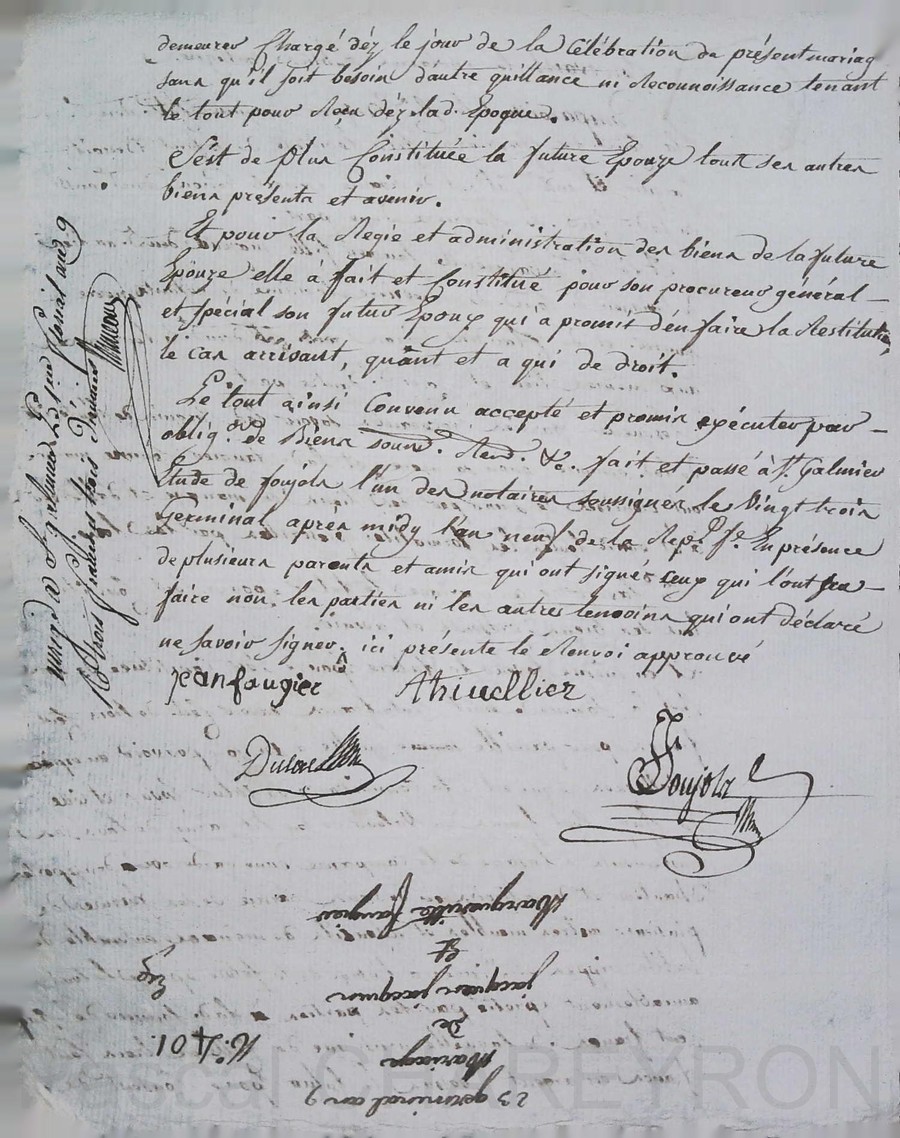 demeurer Chargé déz le jour de la Célébration du présent mariag
sans qu'il soit besoin d'autre quillance ni Reconnoissance tenant
le tout pour Reçu déz lad. Epoque.
S'ést de plus Constituée la future Epouze tout ses autres
biens présents et avenir.
Et pour la Regie et administration des biens de la future
Epouze elle à fait et Constitué pour son procureur général
et spécial son futur Epoux qui a promis d'en faire la Restitution
le cas arrivant, quant et a qui de droit.
Le tout ainsi Convenu accepté et promis exécuter par
oblig.on de Biens soum. Ren. &c. fait et passé à St. Galmier
Etude de foujols l'un des notaires soussignés le Vingt trois
Germinal après midy l'an neuf de la Rep. f. En présence
de plusieurs parents et amis qui ont signé ceux qui l'ont su
faire non les parties ni les autres temoins qui ont déclaré
ne savoir signer. ici présente le Renvoi approuvé
jean faugier Thivellier
Dulac
foujols
Enrg. à St galmier Le floréal an 9
R. trois francs trois Décimes
Marguerite faugier
Et
jacques jacquier
de
Mariage
23 germinal an 9
N.° 401.
Exp
Pascal CHAREYRON